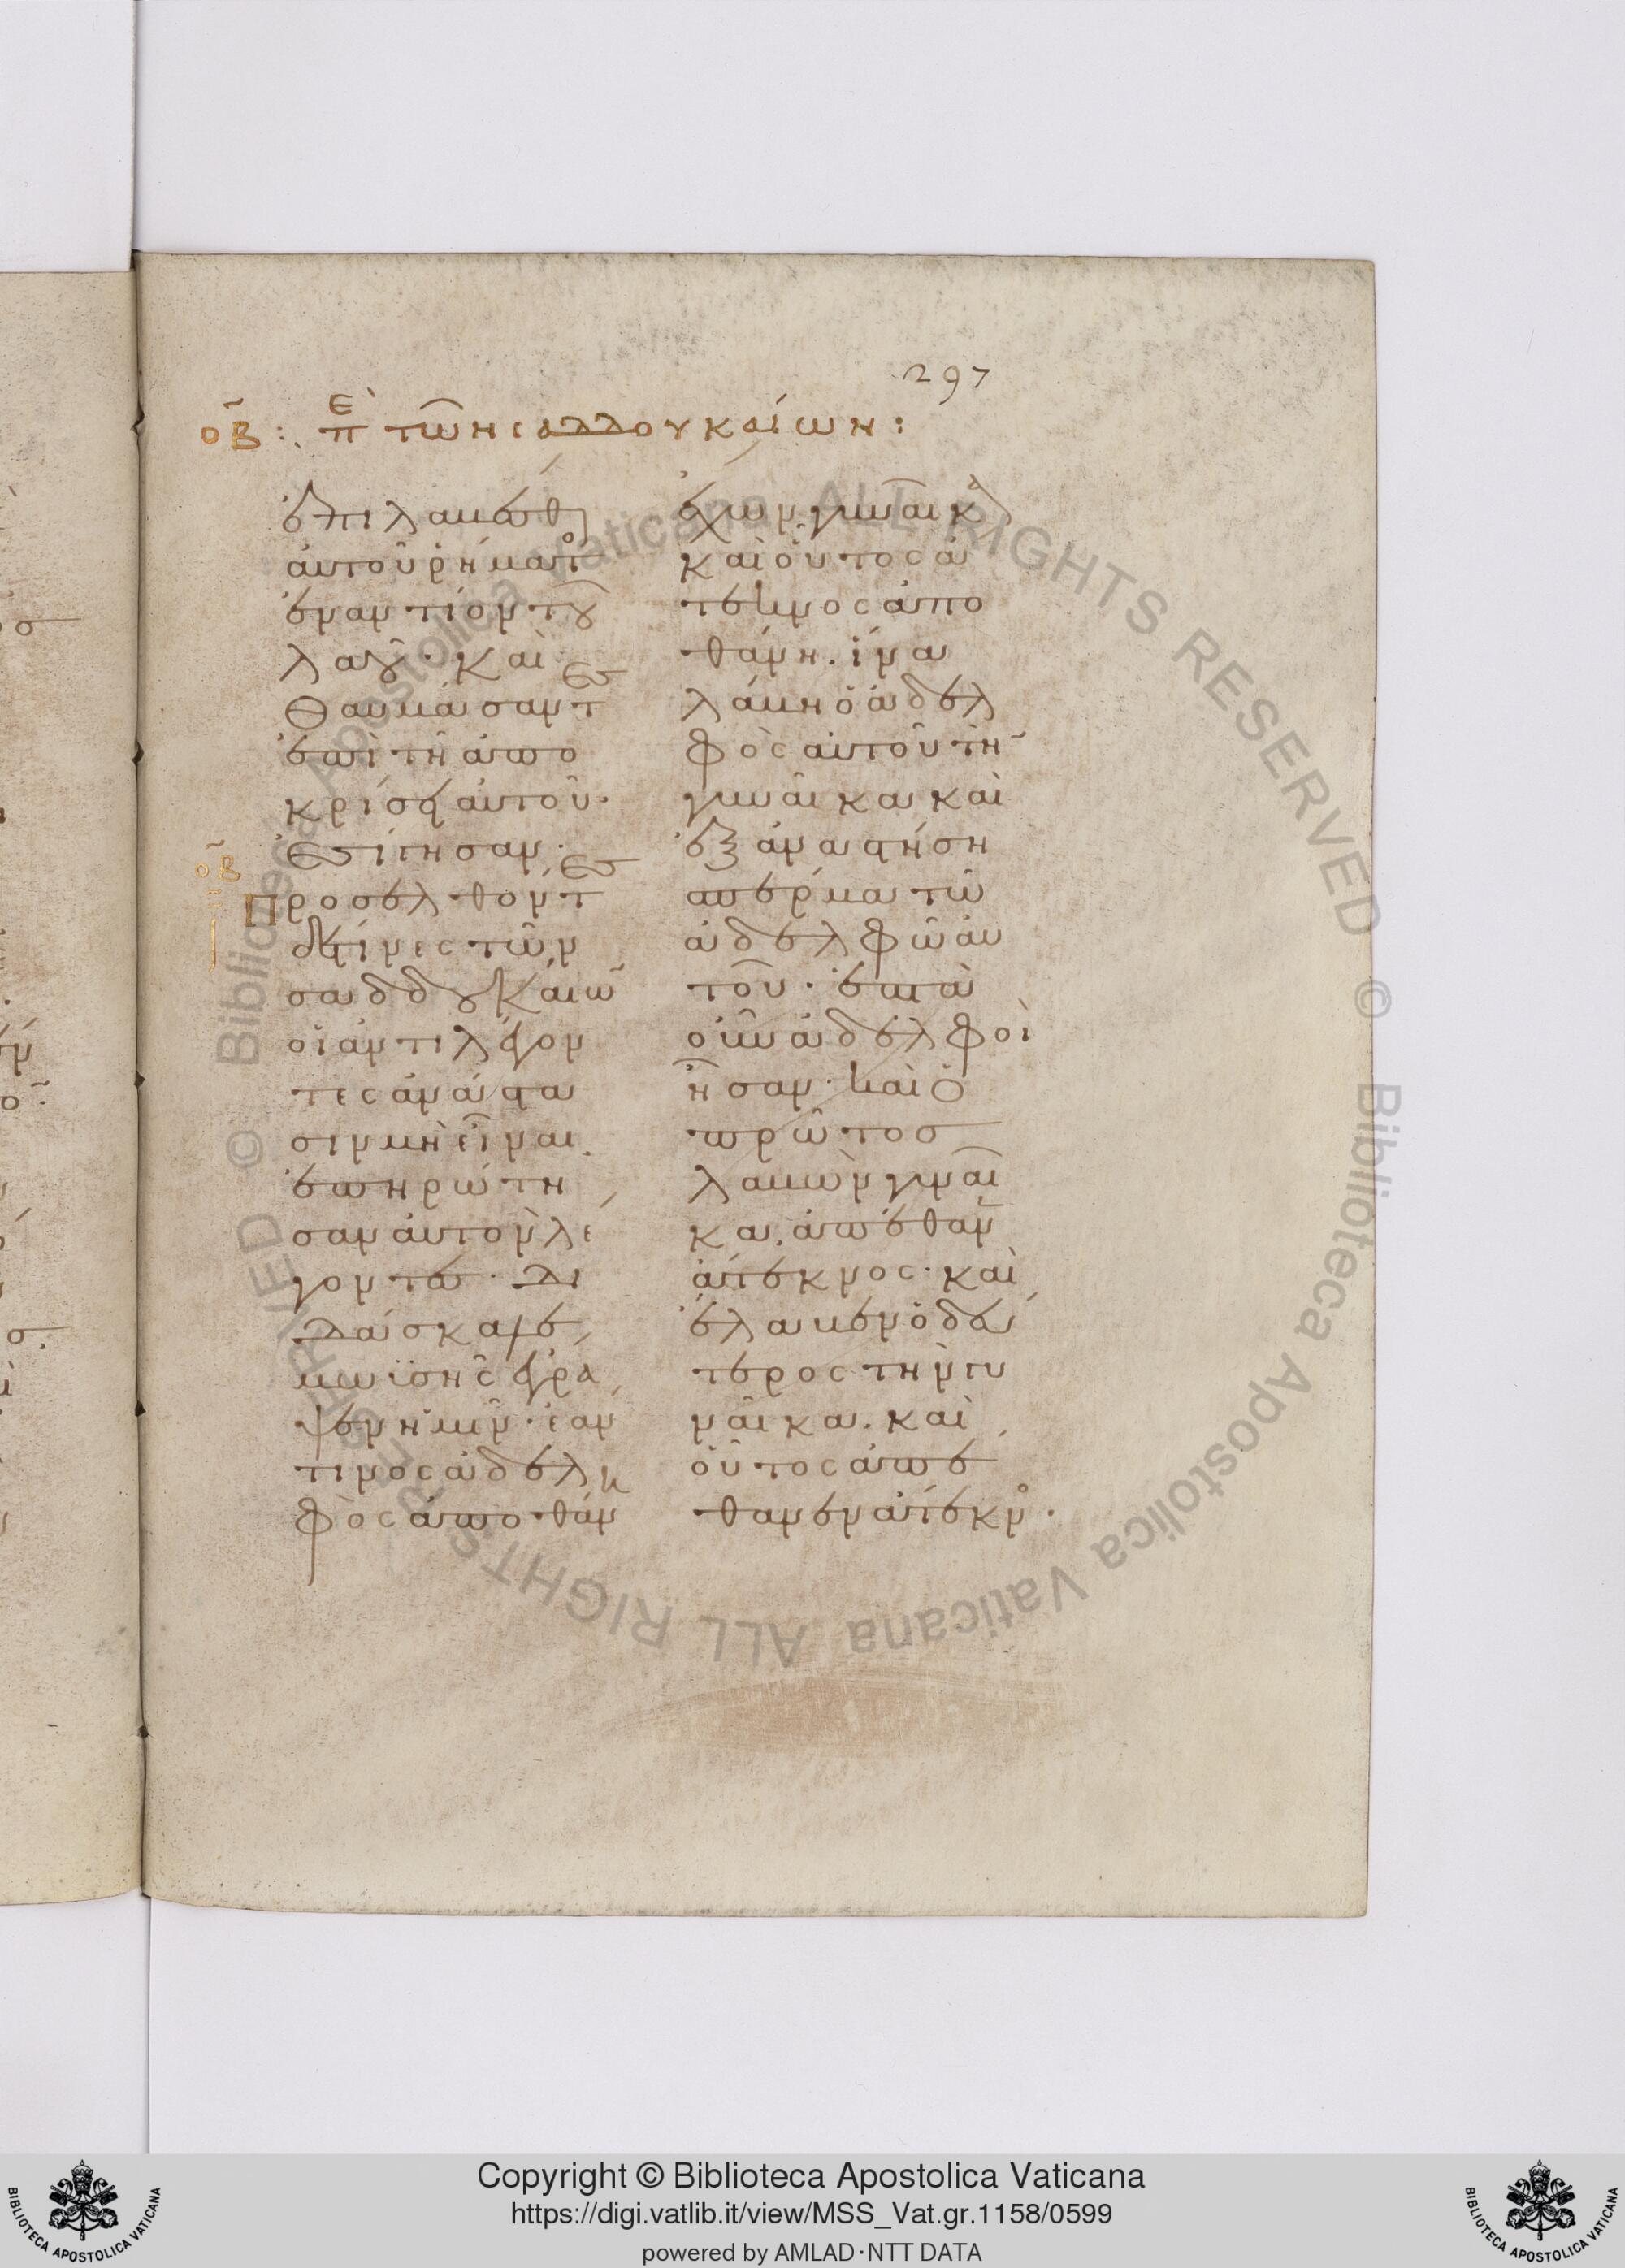 297
οβ̄: πὲ τῶν σαδδουκαίων:
ἐπιλαμβέσθαι
αὐτοῦ ῥήματο
ἐναντίον τοῦ
λαοῦ· καὶ
θαυμάσαντες
ἐπὶ τῆ ἀπο
κρίσει αὐτοῦ·
ἐσίγησαν·
οβ̄
Προσελθόντες
δέ τινες τῶν
σαδδουκαίω̄
οἱ ἀντιλέγον
τες ἀνάστα
σιν μὴ εἶναι.
ἐπηρώτη
σαν αὐτὸν λέ
γοντες· δι
δάσκαλε,
μωϊσῆς ἔγρα
ψεν ἡμῖν· ἐάν
τινος ἀδελ
φὸς ἀποθάν
ἔχων γυναῖκα
καὶ οὗτος ἄ
τεκνος ἀπο
θάνη. ἵνα
λάβη ὁ ἀδελ
φὸς αὐτοῦ τὴ̄
γυναῖκα καὶ
ἐξαναστήση
σπέρμα τῶ
ἀδελφῶ αὐ
τοῦ· ἑπτὰ
οὖν ἀδελφοὶ
ἦσαν· καὶ ὁ
πρῶτος
λαβὼν γυναῖ
κα, ἀπέθαν
ἄτεκνος· καὶ
ἔλαβεν ὁ δεύ
τερος τὴν γυ
ναῖκα. καὶ
οὗτος ἀπέ
θανεν ἄτεκνο·
Copyright © Biblioteca Apostolica Vaticana
https://digi.vatlib.it/view/MSS_Vat.gr.1158/0599
powered by AMLAD·NTT DATA
BIBLIOTECA APOSTOLICA VATICANA
BIBLIOTECA APOSTOLICA VATICANA
© Biblioteca Apostolica Vaticana ALL RIGHTS RESERVED © Biblioteca Apostolica Vaticana ALL RIGHTS RESERVED